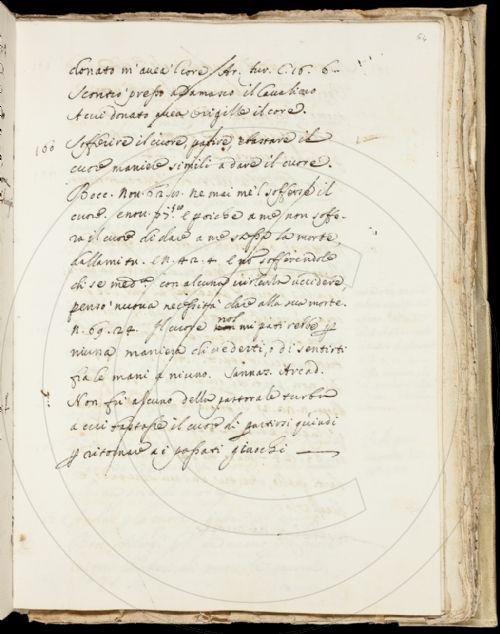 64
donato m'avea 'l core. Ar. fur. C. 16. 6.
Scontrò presso a Damasco il Cavaliero
A cui donato avea Origille il core.
100 Sofferire il cuore, patire, e bastare il
cuore maniere simili a dare il cuore.
Bocc. Nov. 62. 10. ne mai me'l sofferse il
cuore. e nov. 77. E poichè a me non soffe-
ra il cuore di dare a me stessa la morte,
dallami tu. e N. 42. 4. E non sofferendole
di se med.ª con alcuna violenza uccidere,
pensò nuova necessità dare alla sua morte.
N. 69. 24. Il cuore nol mi patirebbe p
niuna maniera di vederti, o di sentirti
fra le mani a niuno. Sannaz. Arcad.
Non fu alcuno della pastorale turba
a cui bastasse il cuore di partirsi quindi
p ritornare a i passati giuochi